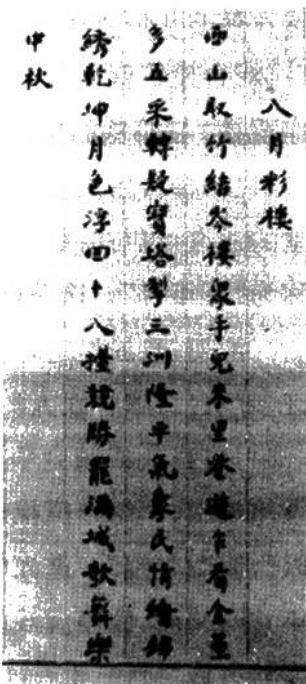 八月彩樓
西山取竹結岑樓衆手兒來里巷遊乍看金蓋
多五采轉疑寳塔擎三洲隆平氣象民情繪錦
綉乾坤月色浮四十八撞競勝罷滿城歌舞樂
中秋